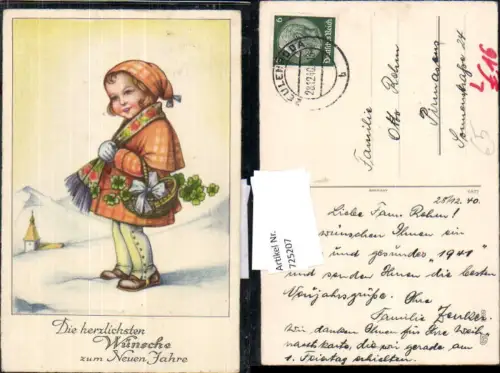 Die herzlichsten
Wünsche
zum Neuen Jahre
Artikel Nr.
725207
6
Deutsches Reich
28.12.40
b
Familie
Otto Rehm
Pirmasens
Sonnenstraße 24
28/12. 40.
Liebe Fam. Rehm!
wünschen Ihnen ein
und gesundes "1941"
und senden Ihnen die besten
Neujahrsgrüße. Ihre
Familie
Wir danken Ihnen für Ihre Weih-
nachtskarte, die wir gerade am
1. Feiertag erhielten.